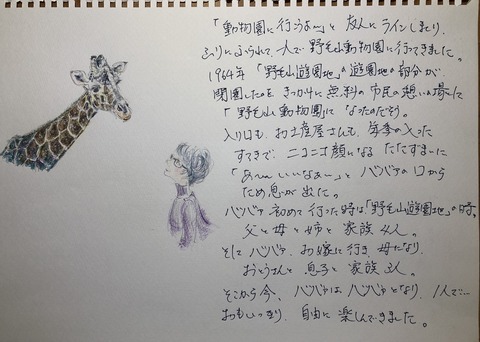 「動物園に行こうよ〜」と友人にラインしまくり、
ふりにふられて、一人で野毛山動物園に行ってきました。
1964年「野毛山遊園地」の遊園地の部分が
閉園したのをきっかけに無料の市民の憩いの場に
「野毛山動物園」になったのだそう。
入り口も、お土産屋さんも、年季の入った
すてきで、ニコニコ顔になるたたずまいに
「あ〜いいなぁ〜」とババァの口から
ため息が出た。
ババァ初めて行った時は「野毛山遊園地」の時。
父と母と姉と家族4人。
そしてババァ、お嫁に行き、母になり、
おとうさんと息子と家族3人。
そこから今、ババァはババァとなり、1人で…
おもいっきり、自由に楽しんできました。